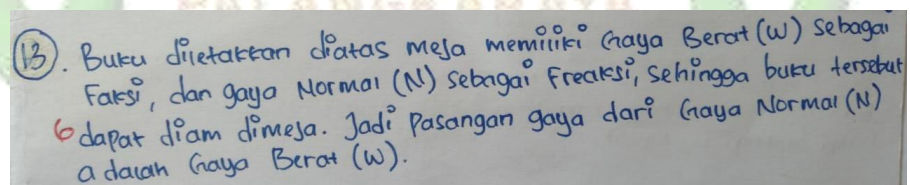 13. Buku diletakkan diatas meja memiliki Gaya Berat (W) sebagai
Faksi, dan gaya Normal (N) sebagai Freaksi, sehingga buku tersebut
6 dapat diam dimeja. Jadi Pasangan gaya dari Gaya Normal (N)
adalah Gaya Berat (W).